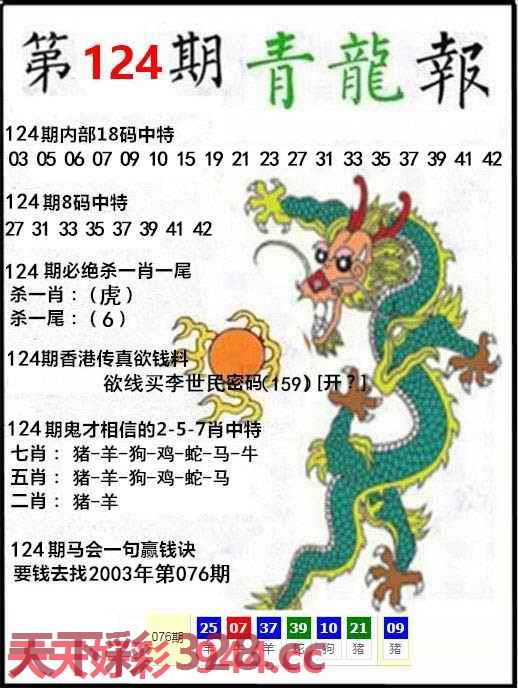 第124期 青龍報
124期内部18码中特
03 05 06 07 09 10 15 19 21 23 27 31 33 35 37 39 41 42
124期8码中特
27 31 33 35 37 39 41 42
124期必绝杀一肖一尾
杀一肖：(虎)
杀一尾：(6)
124期香港传真欲钱料
欲线买李世民密码(159)[开?]
124期鬼才相信的2-5-7肖中特
七肖：猪-羊-狗-鸡-蛇-马-牛
五肖：猪-羊-狗-鸡-蛇-马
二肖：猪-羊
124期马会一句赢钱诀
要钱去找2003年第076期
25 07 37 39 10 21 09
076期 羊 羊 蛇 狗 猪 猪
天下好彩
天天彩
.cc